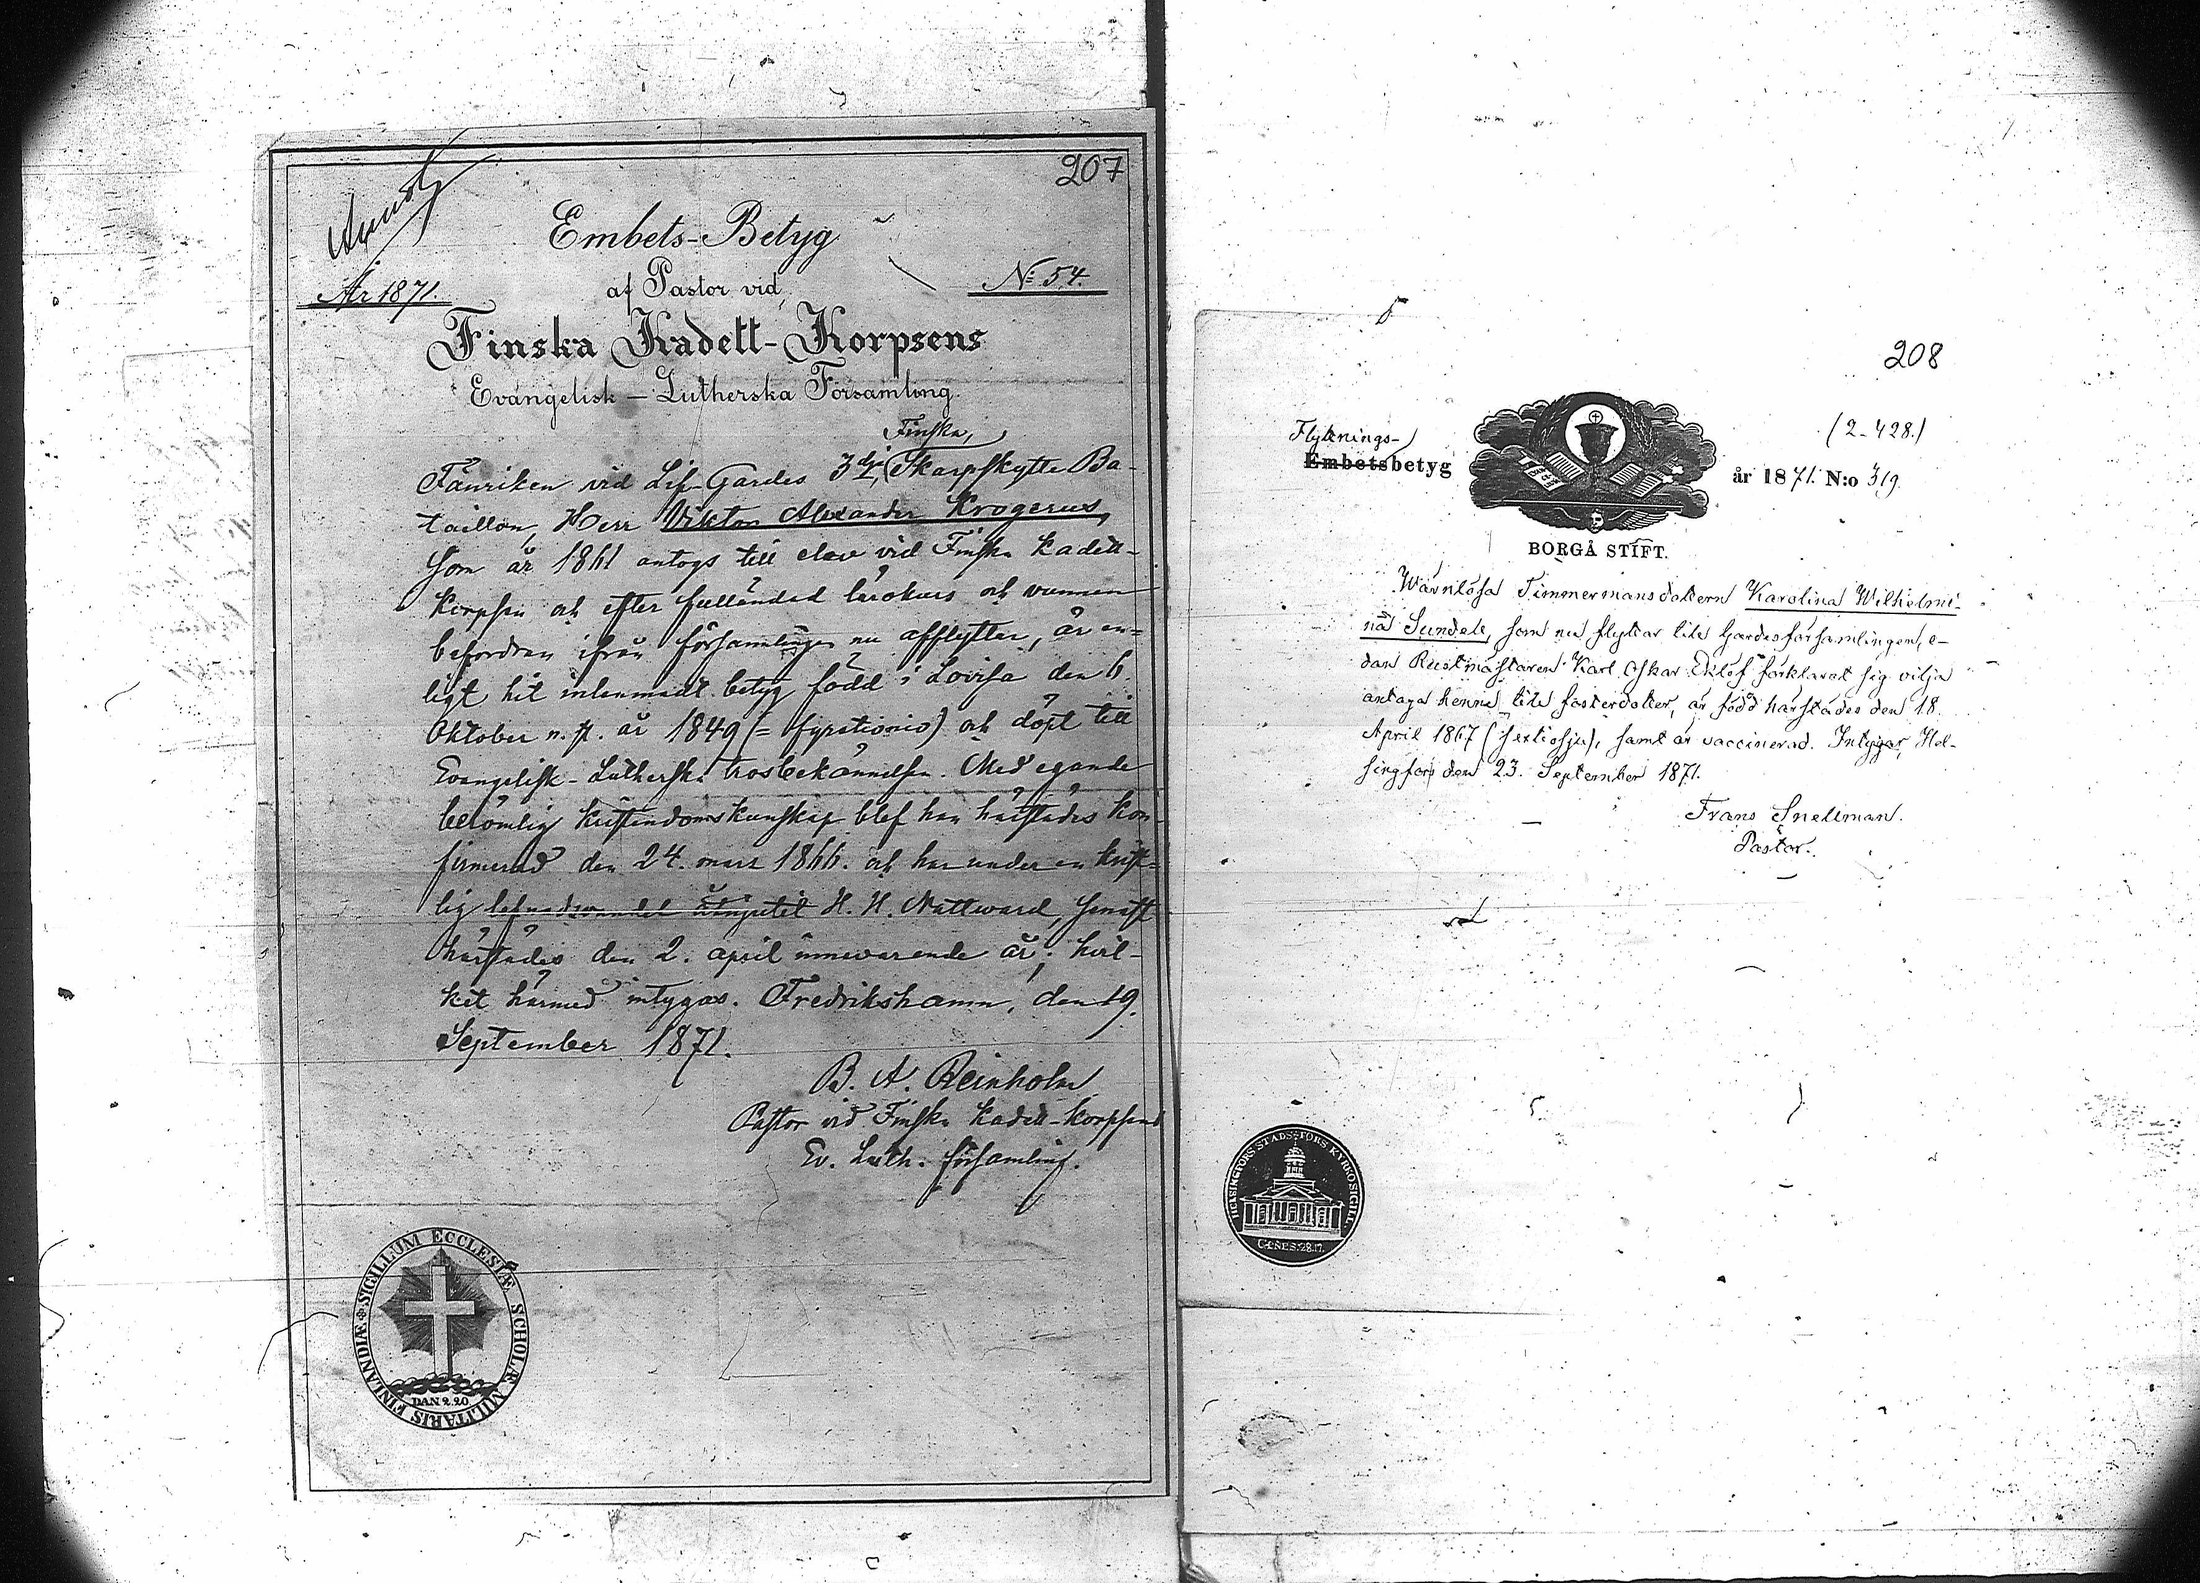 207
Embets-Betyg
af Pastor vid
År 1871.
No 54.
Finska Kadett-Korpsens
Evangelisk-Lutherska Församling.
Finska
Fänriken vid Lif-Gardes 3dje Skarpskytte Ba-
taillon, Herr Viktor Alexander Krogerus,
som år 1861 antogs till elev vid Finska Kadett-
Korpsen och efter fulländad lärokurs och vunnen
befordran ifrån församlingen nu afflyttar, är en-
ligt hit inlemnadt betyg född i Lovisa den 6.
Oktober n. st. år 1849 (= fyrationio) och döpt till
Evangelisk-Lutherska trosbekännelsen. Med egande
berömlig kristendomskunskap blef han härstädes kon-
firmerad den 24. mars 1866. och har under en krist-
lig lefnadsvandel H. H. Nattward, senast
härstädes den 2. april innevarande år; hvil-
ket härmed intygas. Fredrikshamn, den 19.
September 1871.
B. A. Reinholm
Pastor vid Finska Kadett-Korpsens
Ev. Luth. församling.
SIGILLUM ECCLESIÆ SCHOLÆ MILITARIS FINLANDIÆ
DAN 2.20
208
(2-428.)
Flyttnings-
Embetsbetyg
år 1871. N:o 319.
BORGÅ STIFT.
Wärnlösa Timmermansdottern Karolina Wilhelmi-
na Sundell, som nu flyttar till Gardesförsamlingen, e-
dan Rustmästaren Karl Oskar förklarat sig vilja
antaga henne till fosterdotter, är född härstädes den 18.
April 1867 (sextiosju), samt är vaccinerad. Intygar, Hel-
singfors den 23. September 1871.
Frans Snellman.
Pastor.
HELSINGFORS STADS-FÖRS. KYRKOSIGILL.
GENES: 28.17.